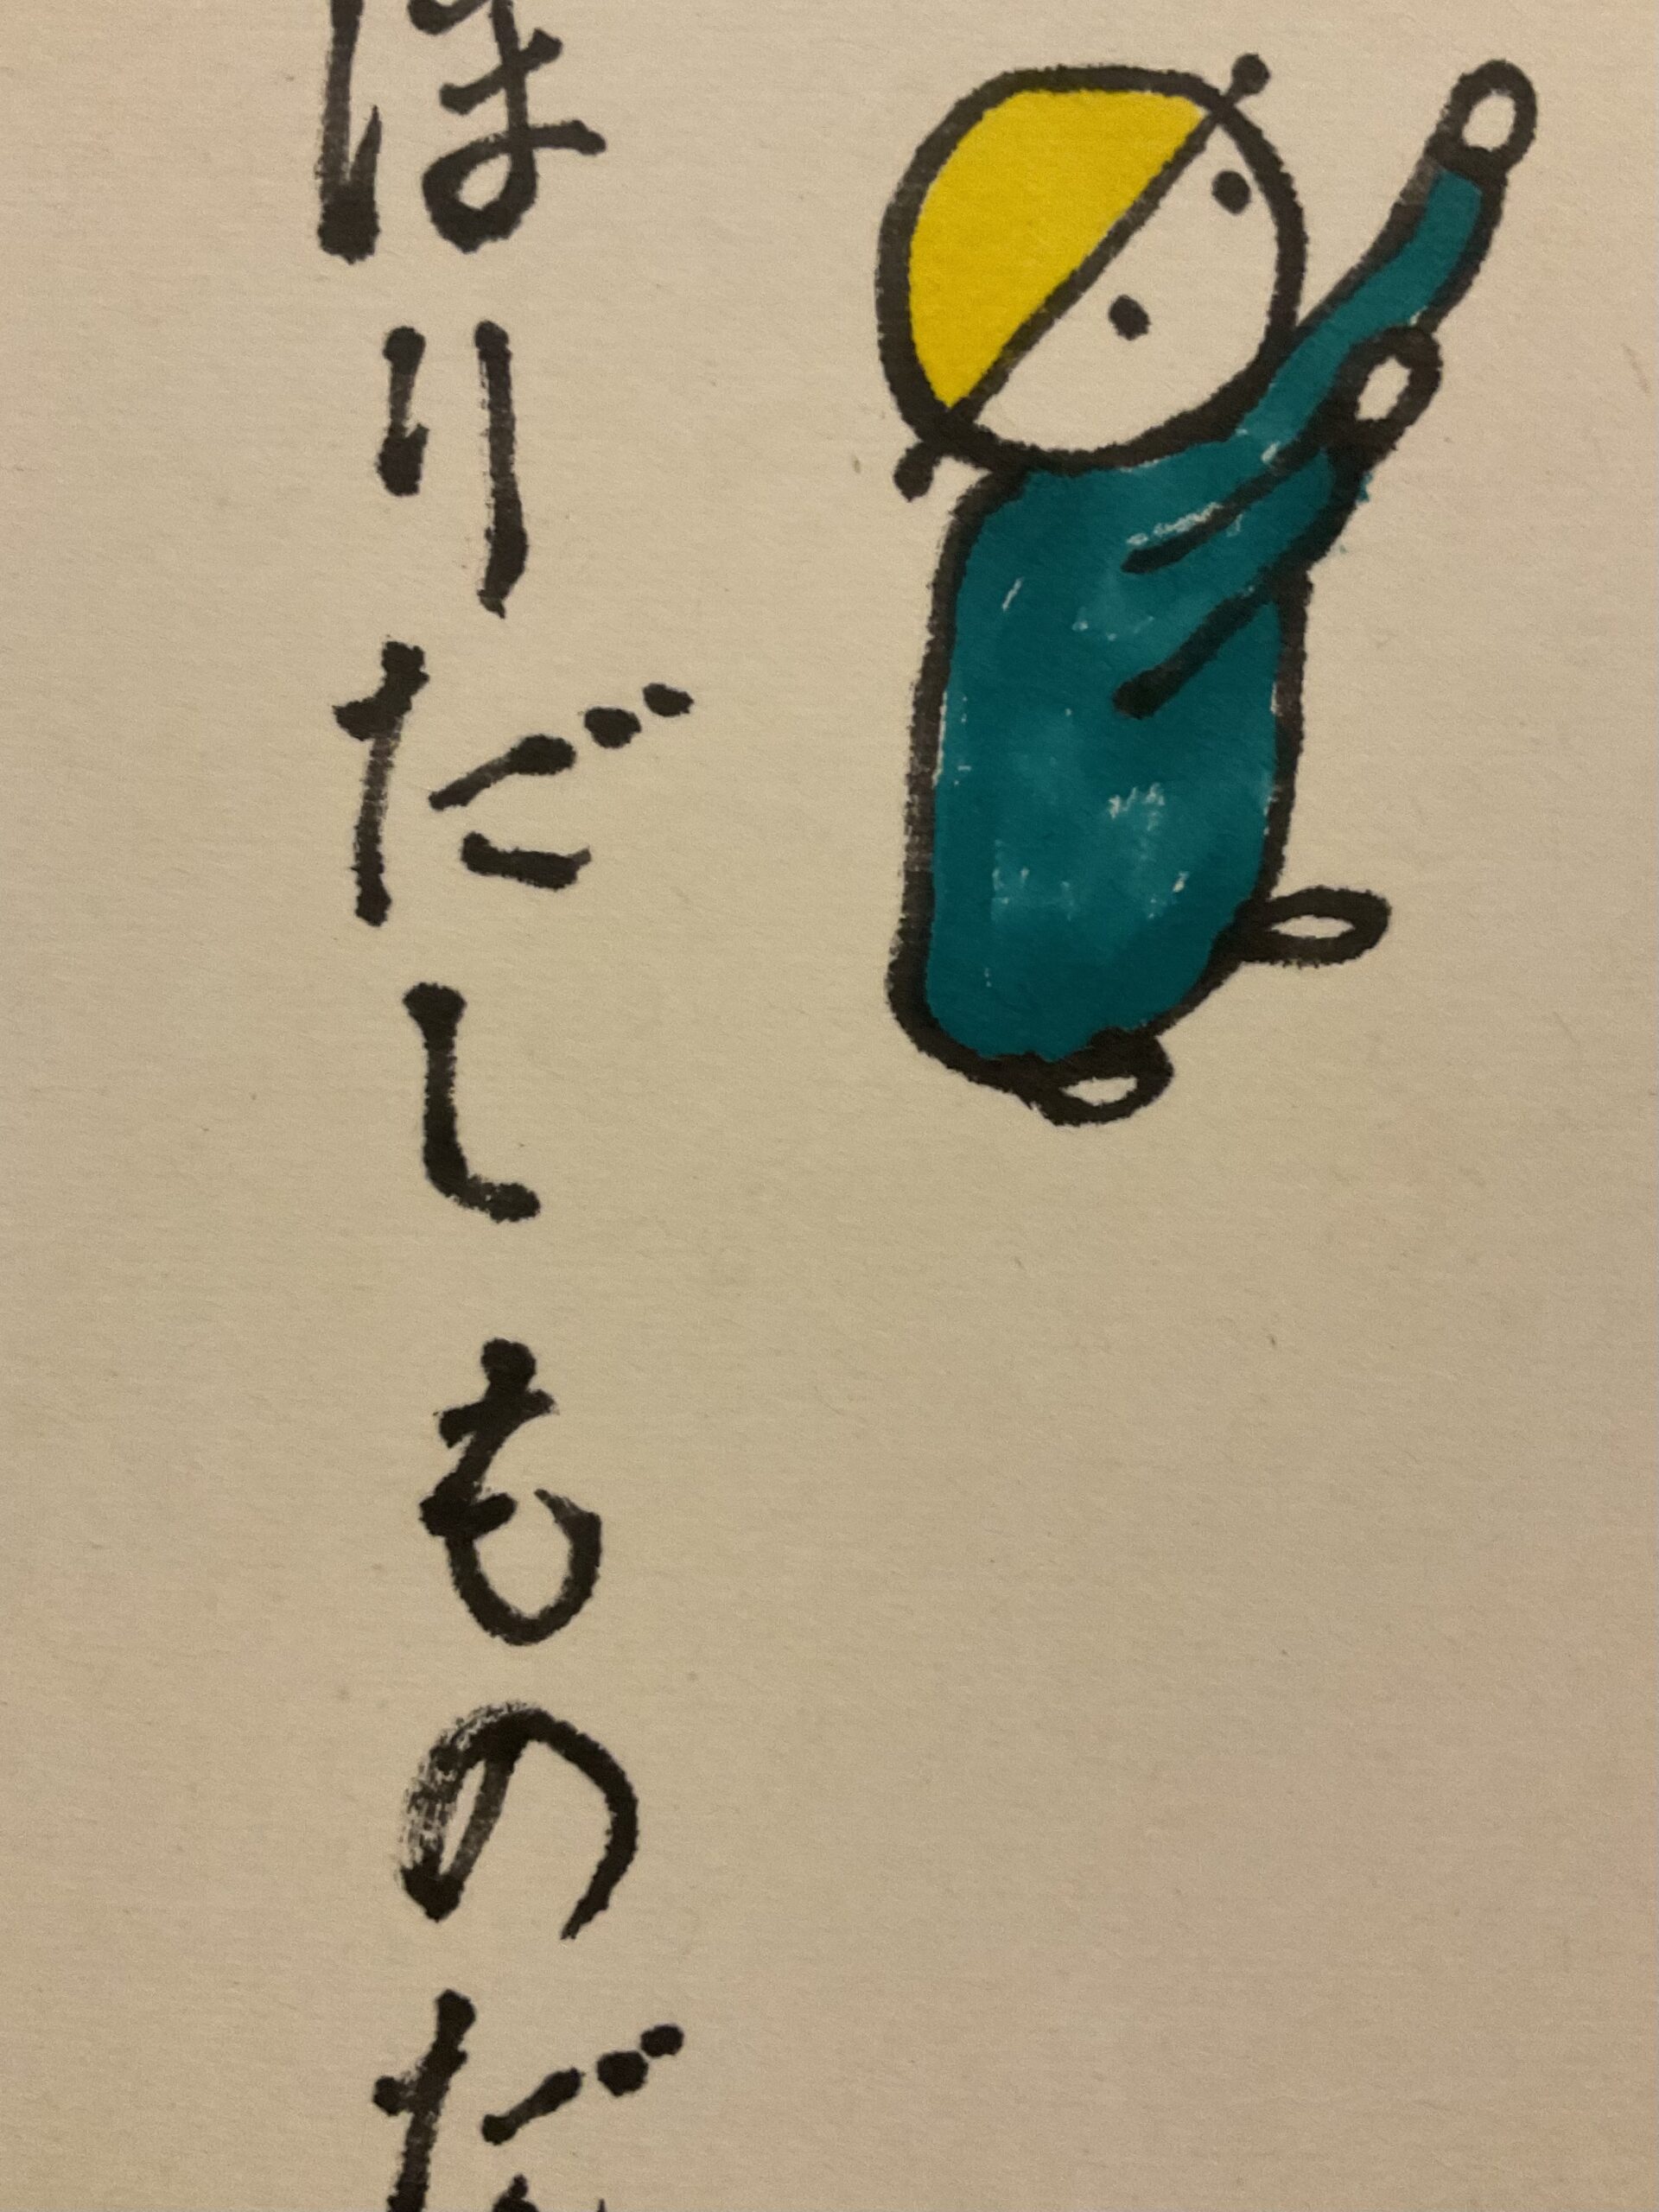 ほりだしものだ